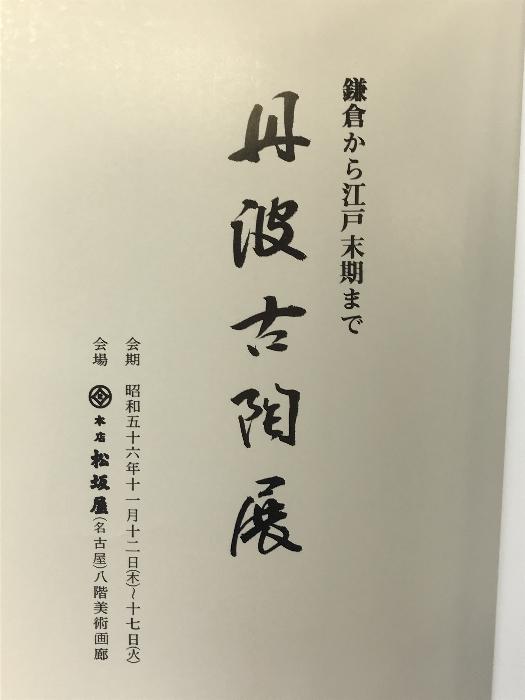 鎌倉から江戸末期まで
丹波古陶展
会期 昭和五十六年十一月十二日(木)~十七日(火)
会場 本店 松坂屋(名古屋)八階美術画廊